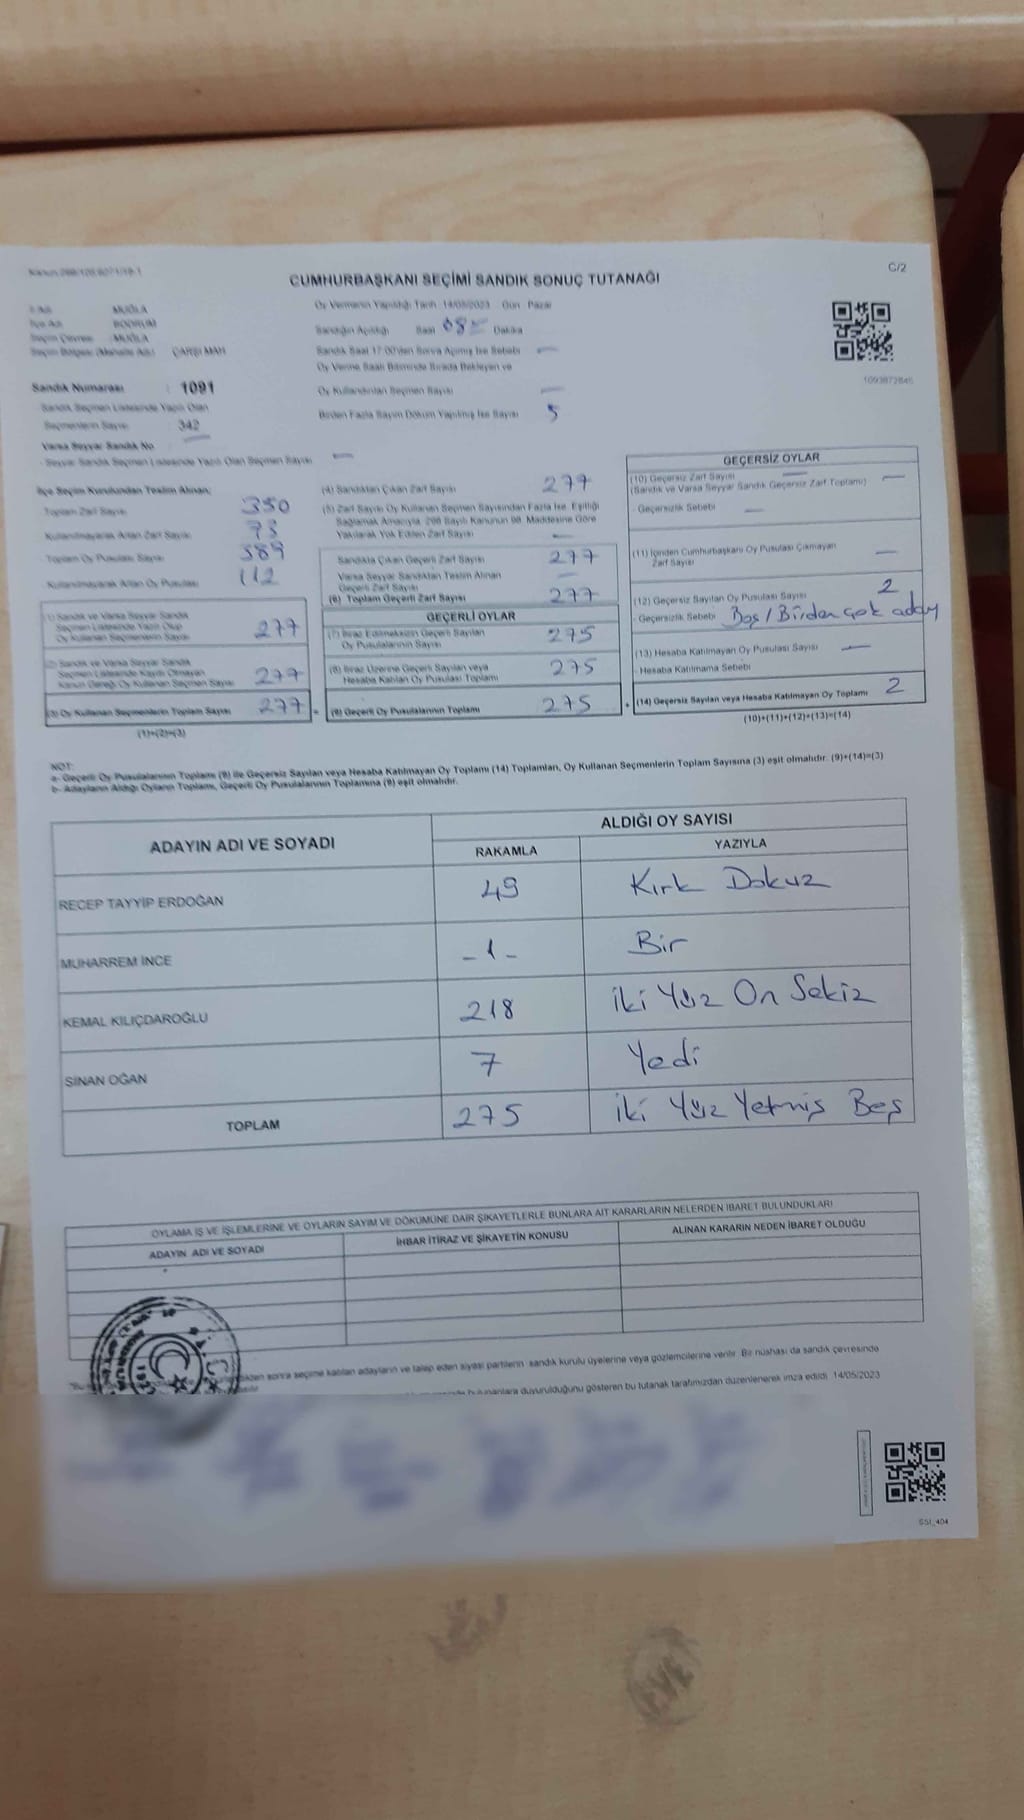 C/2
CUMHURBAŞKANI SEÇİMİ SANDIK SONUÇ TUTANAĞI
İli Adı MUĞLA
İlçe Adı BODRUM
Seçim Çevresi MUĞLA
Seçim Bölgesi (Mahalle Adı) ÇARŞI MAH
Sandık Numarası : 1091
Sandık Seçmen Listesinde Yazılı Olan
Seçmenlerin Sayısı 342
Varsa Seyyar Sandık No
Seyyar Sandık Seçmen Listesinde Yazılı Olan Seçmen Sayısı —
Oy Vermenin Yapıldığı Tarih 14/05/2023 Gün Pazar
Sandığın Açıldığı Saat 08 Dakika
Sandık Saat 17:00'den Sonra Açılmış İse Sebebi —
Oy Verme Saati Bitiminde Sırada Bekleyen ve
Oy Kullandırılan Seçmen Sayısı —
Birden Fazla Sayım Döküm Yapılmış İse Sayısı 5
1093872845
İlçe Seçim Kurulundan Teslim Alınan;
Toplam Zarf Sayısı 350
Kullanılmayarak Artan Zarf Sayısı 73
Toplam Oy Pusulası Sayısı 389
Kullanılmayarak Artan Oy Pusulası 112
(1) Sandık ve Varsa Seyyar Sandık
Seçmen Listesinde Yazılı Olup
Oy Kullanan Seçmenlerin Sayısı 277
(2) Sandık ve Varsa Seyyar Sandık
Seçmen Listesinde Kayıtlı Olmayan
Kanun Gereği Oy Kullanan Seçmen Sayısı 277
(3) Oy Kullanan Seçmenlerin Toplam Sayısı 277
(1)+(2)=(3)
(4) Sandıktan Çıkan Zarf Sayısı 277
(5) Zarf Sayısı Oy Kullanan Seçmen Sayısından Fazla İse, Eşitliği
Sağlamak Amacıyla, 298 Sayılı Kanunun 98. Maddesine Göre
Yakılarak Yok Edilen Zarf Sayısı —
Sandıkta Çıkan Geçerli Zarf Sayısı 277
Varsa Seyyar Sandıktan Teslim Alınan
Geçerli Zarf Sayısı —
(6) Toplam Geçerli Zarf Sayısı 277
GEÇERLİ OYLAR
(7) İtiraz Edilmeksizin Geçerli Sayılan
Oy Pusulalarının Sayısı 275
(8) İtiraz Üzerine Geçerli Sayılan veya
Hesaba Katılan Oy Pusulası Toplamı 275
(9) Geçerli Oy Pusulalarının Toplamı 275
GEÇERSİZ OYLAR
(10) Geçersiz Zarf Sayısı —
(Sandık ve Varsa Seyyar Sandık Geçersiz Zarf Toplamı)
- Geçersizlik Sebebi —
(11) İçinden Cumhurbaşkanı Oy Pusulası Çıkmayan
Zarf Sayısı —
(12) Geçersiz Sayılan Oy Pusulası Sayısı 2
- Geçersizlik Sebebi Boş / Birden çok aday
(13) Hesaba Katılmayan Oy Pusulası Sayısı —
- Hesaba Katılmama Sebebi
(14) Geçersiz Sayılan veya Hesaba Katılmayan Oy Toplamı 2
(10)+(11)+(12)+(13)=(14)
NOT:
a- Geçerli Oy Pusulalarının Toplamı (9) ile Geçersiz Sayılan veya Hesaba Katılmayan Oy Toplamı (14) Toplamları, Oy Kullanan Seçmenlerin Toplam Sayısına (3) eşit olmalıdır. (9)+(14)=(3)
b- Adayların Aldığı Oyların Toplamı, Geçerli Oy Pusulalarının Toplamına (9) eşit olmalıdır.
ADAYIN ADI VE SOYADI
ALDIĞI OY SAYISI
RAKAMLA YAZIYLA
RECEP TAYYİP ERDOĞAN 49 Kırk Dokuz
MUHARREM İNCE -1- Bir
KEMAL KILIÇDAROĞLU 218 İki Yüz On Sekiz
SİNAN OĞAN 7 Yedi
TOPLAM 275 İki Yüz Yetmiş Beş
OYLAMA İŞ VE İŞLEMLERİNE VE OYLARIN SAYIM VE DÖKÜMÜNE DAİR ŞİKAYETLERLE BUNLARA AİT KARARLARIN NELERDEN İBARET BULUNDUKLARI
ADAYIN ADI VE SOYADI İHBAR İTİRAZ VE ŞİKAYETİN KONUSU ALINAN KARARIN NEDEN İBARET OLDUĞU
sonra seçime katılan adayların ve talep eden siyasi partilerin sandık kurulu üyelerine veya gözlemcilerine verilir. Bir nüshası da sandık çevresinde
bulunanlara duyurulduğunu gösteren bu tutanak tarafımızdan düzenlenerek imza edildi. 14/05/2023